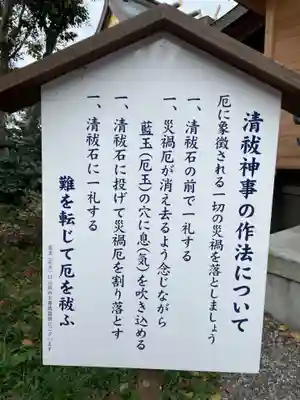 清祓神事の作法について
厄に象徴される一切の災禍を落としましょう
一、清祓石の前で一礼する
一、災禍厄が消え去るよう念じながら
藍玉(厄玉)の穴に息(氣)を吹き込める
一、清祓石に投げて災禍厄を割り落とす
一、清祓石に一礼する
難を転じて厄を祓ふ